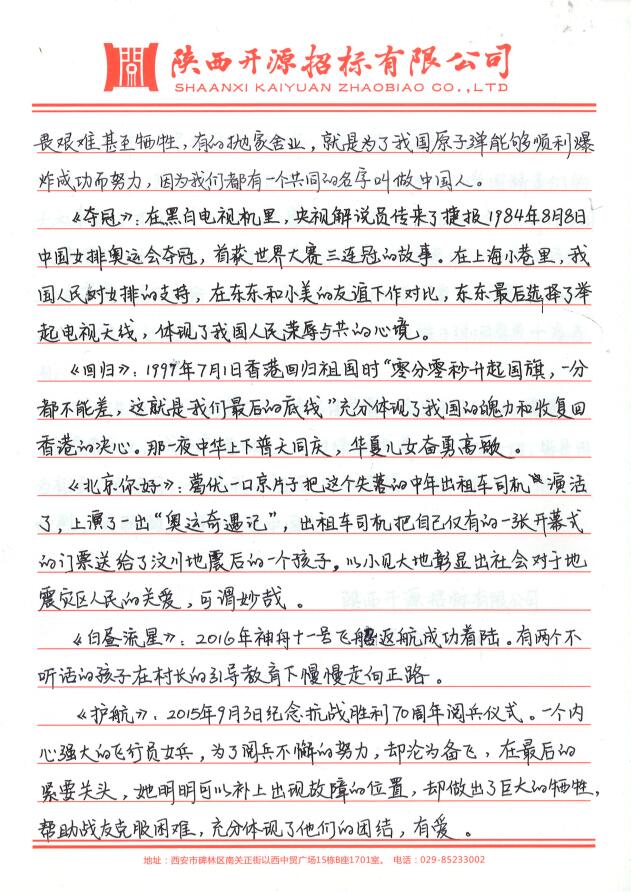 陕西开源招标有限公司
SHAANXI KAIYUAN ZHAOBIAO CO.,LTD
畏艰难甚至牺牲,有的抛家舍业,就是为了我国原子弹能够顺利爆
炸成功而努力,因为我们都有一个共同的名字叫做中国人。
《夺冠》:在黑白电视机里,央视解说员传来了捷报1984年8月8日
中国女排奥运会夺冠,首获世界大赛三连冠的故事。在上海小巷里,我
国人民对女排的支持,在东东和小美的友谊下作对比,东东最后选择了举
起电视天线,体现了我国人民荣辱与共的心境。
《回归》:1997年7月1日香港回归祖国时“零分零秒升起国旗,一分
都不能差,这就是我们最后的底线”充分体现了我国的魄力和收复回
香港的决心。那一夜中华上下普天同庆,华夏儿女奋勇高歌。
《北京你好》:葛优一口京片子把这个失落的中年出租车司机演活
了,上演了一出“奥运奇遇记”,出租车司机把自己仅有的一张开幕式
的门票送给了汶川地震后的一个孩子。以小见大地彰显出社会对于地
震灾区人民的关爱,可谓妙哉。
《白昼流星》:2016年神舟十一号飞船返航成功着陆。有两个不
听话的孩子在村长的引导教育下慢慢走向正路。
《护航》:2015年9月3日纪念抗战胜利70周年阅兵仪式。一个内
心强大的飞行员女兵,为了阅兵不懈的努力,却沦为备飞,在最后的
紧要关头,她明明可以补上出现故障的位置,却做出了巨大的牺牲,
帮助战友克服困难,充分体现了他们的团结,有爱。
地址:西安市碑林区南关正街以西中贸广场15栋B座1701室。 电话:029-85233002